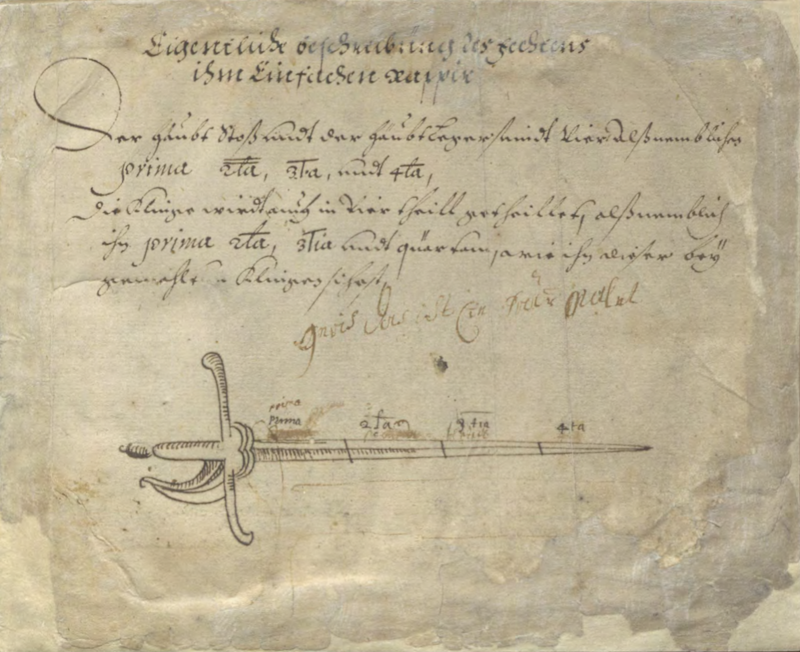 Eigentliche beschreibung des fechtens
ihm Einfachen rappir
Der haubt Stoß undt der haubt Leger sindt Vier alß nemblichen
prima 2ta, 3tia, undt 4ta,
die Klinge wirdt auch in Vier theill getheillet, alß nemblich
ihn prima 2ta, 3tia undt quartam, wie ihn dieser beÿ
gemahlten Klingen
das ist
prima
prima
2ta
3tia
4ta